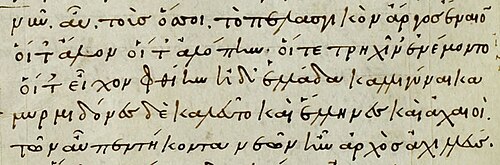 νῦν. αὖ. τοὺς ὅσσοι. τὸ πελασγικὸν ἄργος ἔναιον
οἵ τ' ἄλον οἵ τ' ἀλόπην. οἵ τε τρηχῖν' ἐνέμοντο
οἵ τ' εἶχον φθίην ἠδ' ἑλλάδα καλλιγύναικα
μυρμιδόνες δὲ καλεῦντο καὶ ἕλληνες καὶ ἀχαιοί.
τῶν αὖ πεντήκοντα νεῶν ἦν ἀρχὸς ἀχιλλεύς.